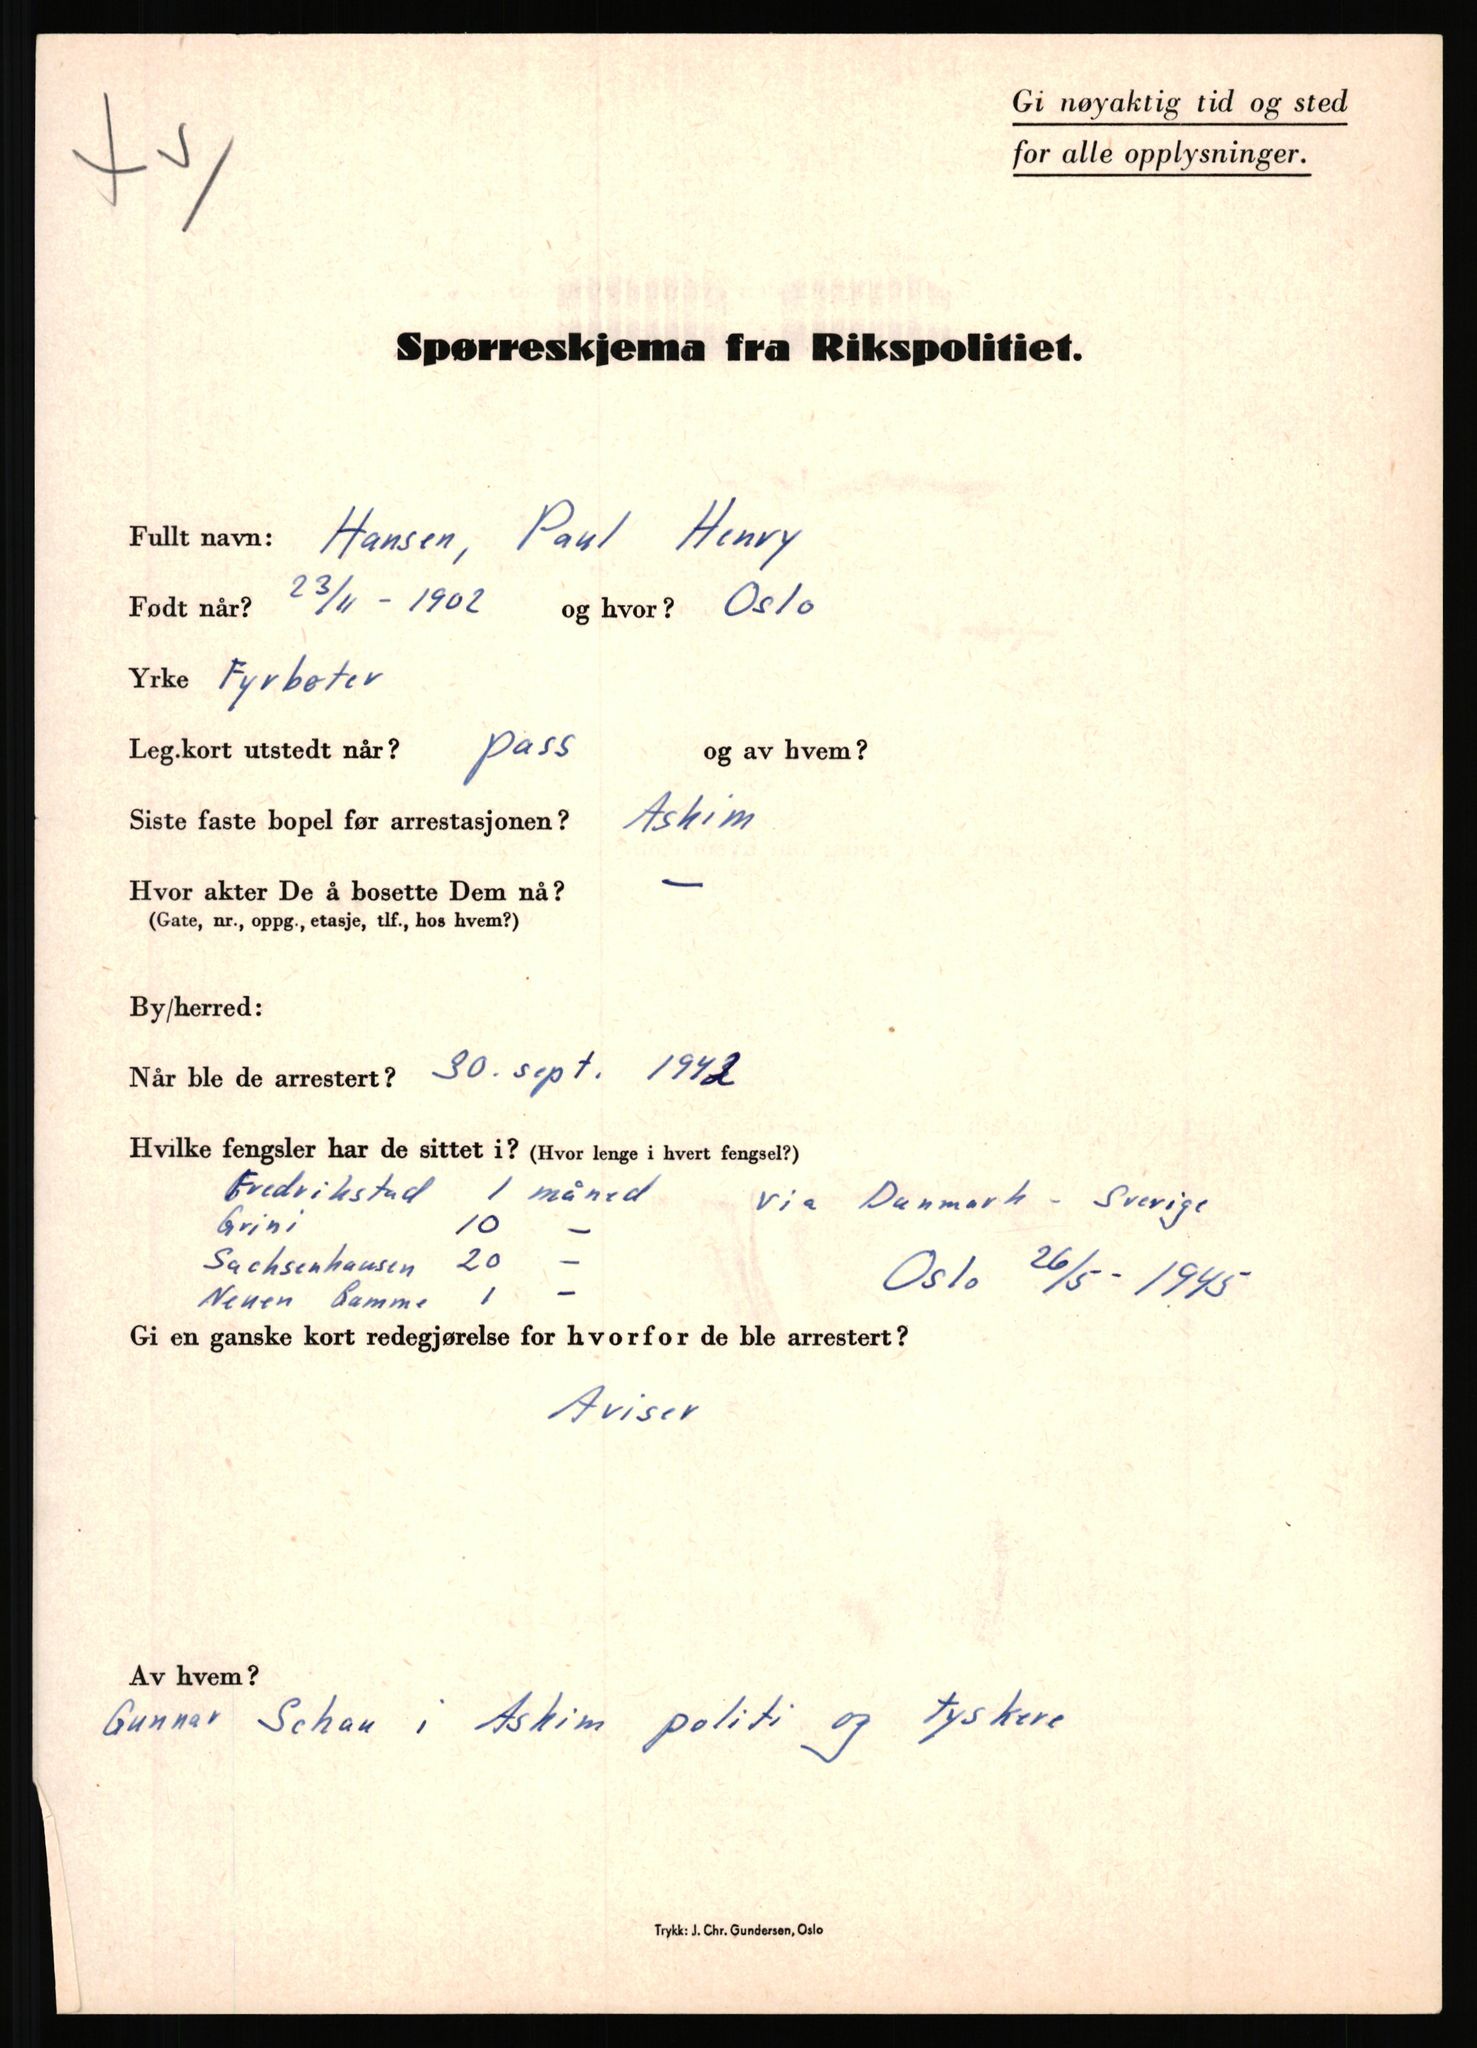 Gi nøyaktig tid og sted
for alle opplysninger.
Spørreskjema fra Rikspolitiet.
Fullt navn: Hansen, Paul Henry
Født når? 23/11 - 1902 og hvor? Oslo
Yrke Fyrbøter
Leg.kort utstedt når? pass og av hvem?
Siste faste bopel før arrestasjonen? Askim
Hvor akter De å bosette Dem nå? —
(Gate, nr., oppg., etasje, tlf., hos hvem?)
By/herred:
Når ble de arrestert? 30. sept. 1942
Hvilke fengsler har de sittet i? (Hvor lenge i hvert fengsel?)
Fredrikstad 1 måned via Danmark - Sverige
Grini 10 —
Sachsenhausen 20 — Oslo 26/5 - 1945
Neuen Gamme 1 —
Gi en ganske kort redegjørelse for hvorfor de ble arrestert?
Aviser
Av hvem?
Gunnar Schau i Askim politi og tyskere
Trykk: J. Chr. Gundersen, Oslo